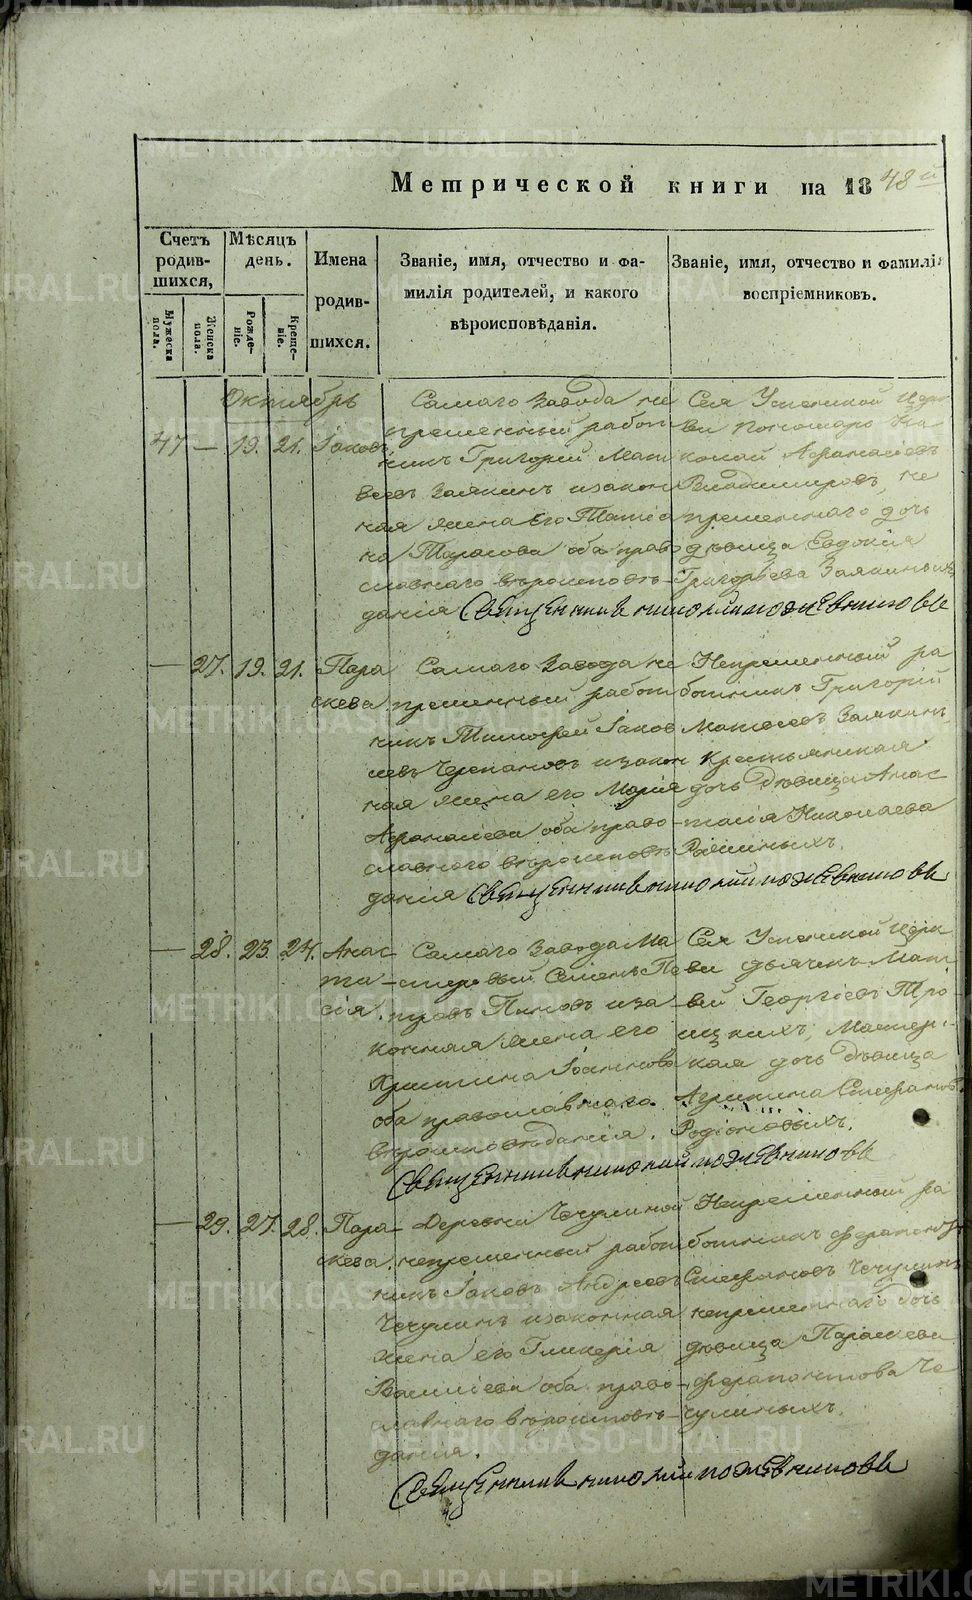 Метрической книги на 1848й
Счетъ родив-шихся,
Мужеска пола.
Женска пола.
Мѣсяцъ день.
Рожде-ніе.
Креще-ніе.
Имена родив-шихся.
Званіе, имя, отчество и фа-
милія родителей, и какого
вѣроисповѣданія.
Званіе, имя, отчество и фамилія
воспріемниковъ.
Октябрь
47 — 19. 21. Іаковъ
Самаго Завода не
пременный работ
никъ Григорій Мат
веевъ Заякинъ и закон
ная жена его Татіа
на Тарасова оба право
славнаго вѣроисповѣ-
данія
Сея Успенской Церк
ви пономарь Ни
колай Афанасіевъ
Владимировъ, не
пременнаго дочь
дѣвица Евдокія
Григорьева Заякиныхъ
Священник Николай Кожевников
— 27. 19. 21. Пара
скева
Самаго Завода не
пременный работ
никъ Тимофей Іаков
левъ Черепановъ и закон
ная жена его Марія
Афанасіева оба право-
славнаго вѣроисповѣ
данія
Непременный ра
ботникъ Григорій
Матвеевъ Заякинъ
Крестьянская
дочь дѣвица Анас
тасія Николаева
Священник Николай Кожевников
— 28. 23. 24. Анас
та-
сія.
Самаго Завода Ма
стеровый Семенъ Пе
тровъ Пановъ и за
конная жена его
Христина Іоаннова
оба православнаго
вѣроисповѣданія.
Сея Успенской Церк
ви дьячекъ Мат
вей Георгіевъ Тро
ицкихъ, Мастер-
ская дочь дѣвица
Агрипина Стефанов.
Родіоновыхъ.
Священник Николай Кожевников
— 29. 27. 28. Пара-
скева.
Деревни Чечулиной
непременный работ
никъ Іаковъ Андреевъ
Чечулинъ и законная
жена его Гликерія
Василіева оба право-
славнаго вѣроисповѣ-
данія.
Непременный ра
ботникъ Ферапонтъ
Стефановъ Чечулинъ
непременнаго дочь
дѣвица Параскева
Ферапонтова Че
чулиныхъ.
Священник Николай Кожевников
METRIKI.GASO-URAL.RU